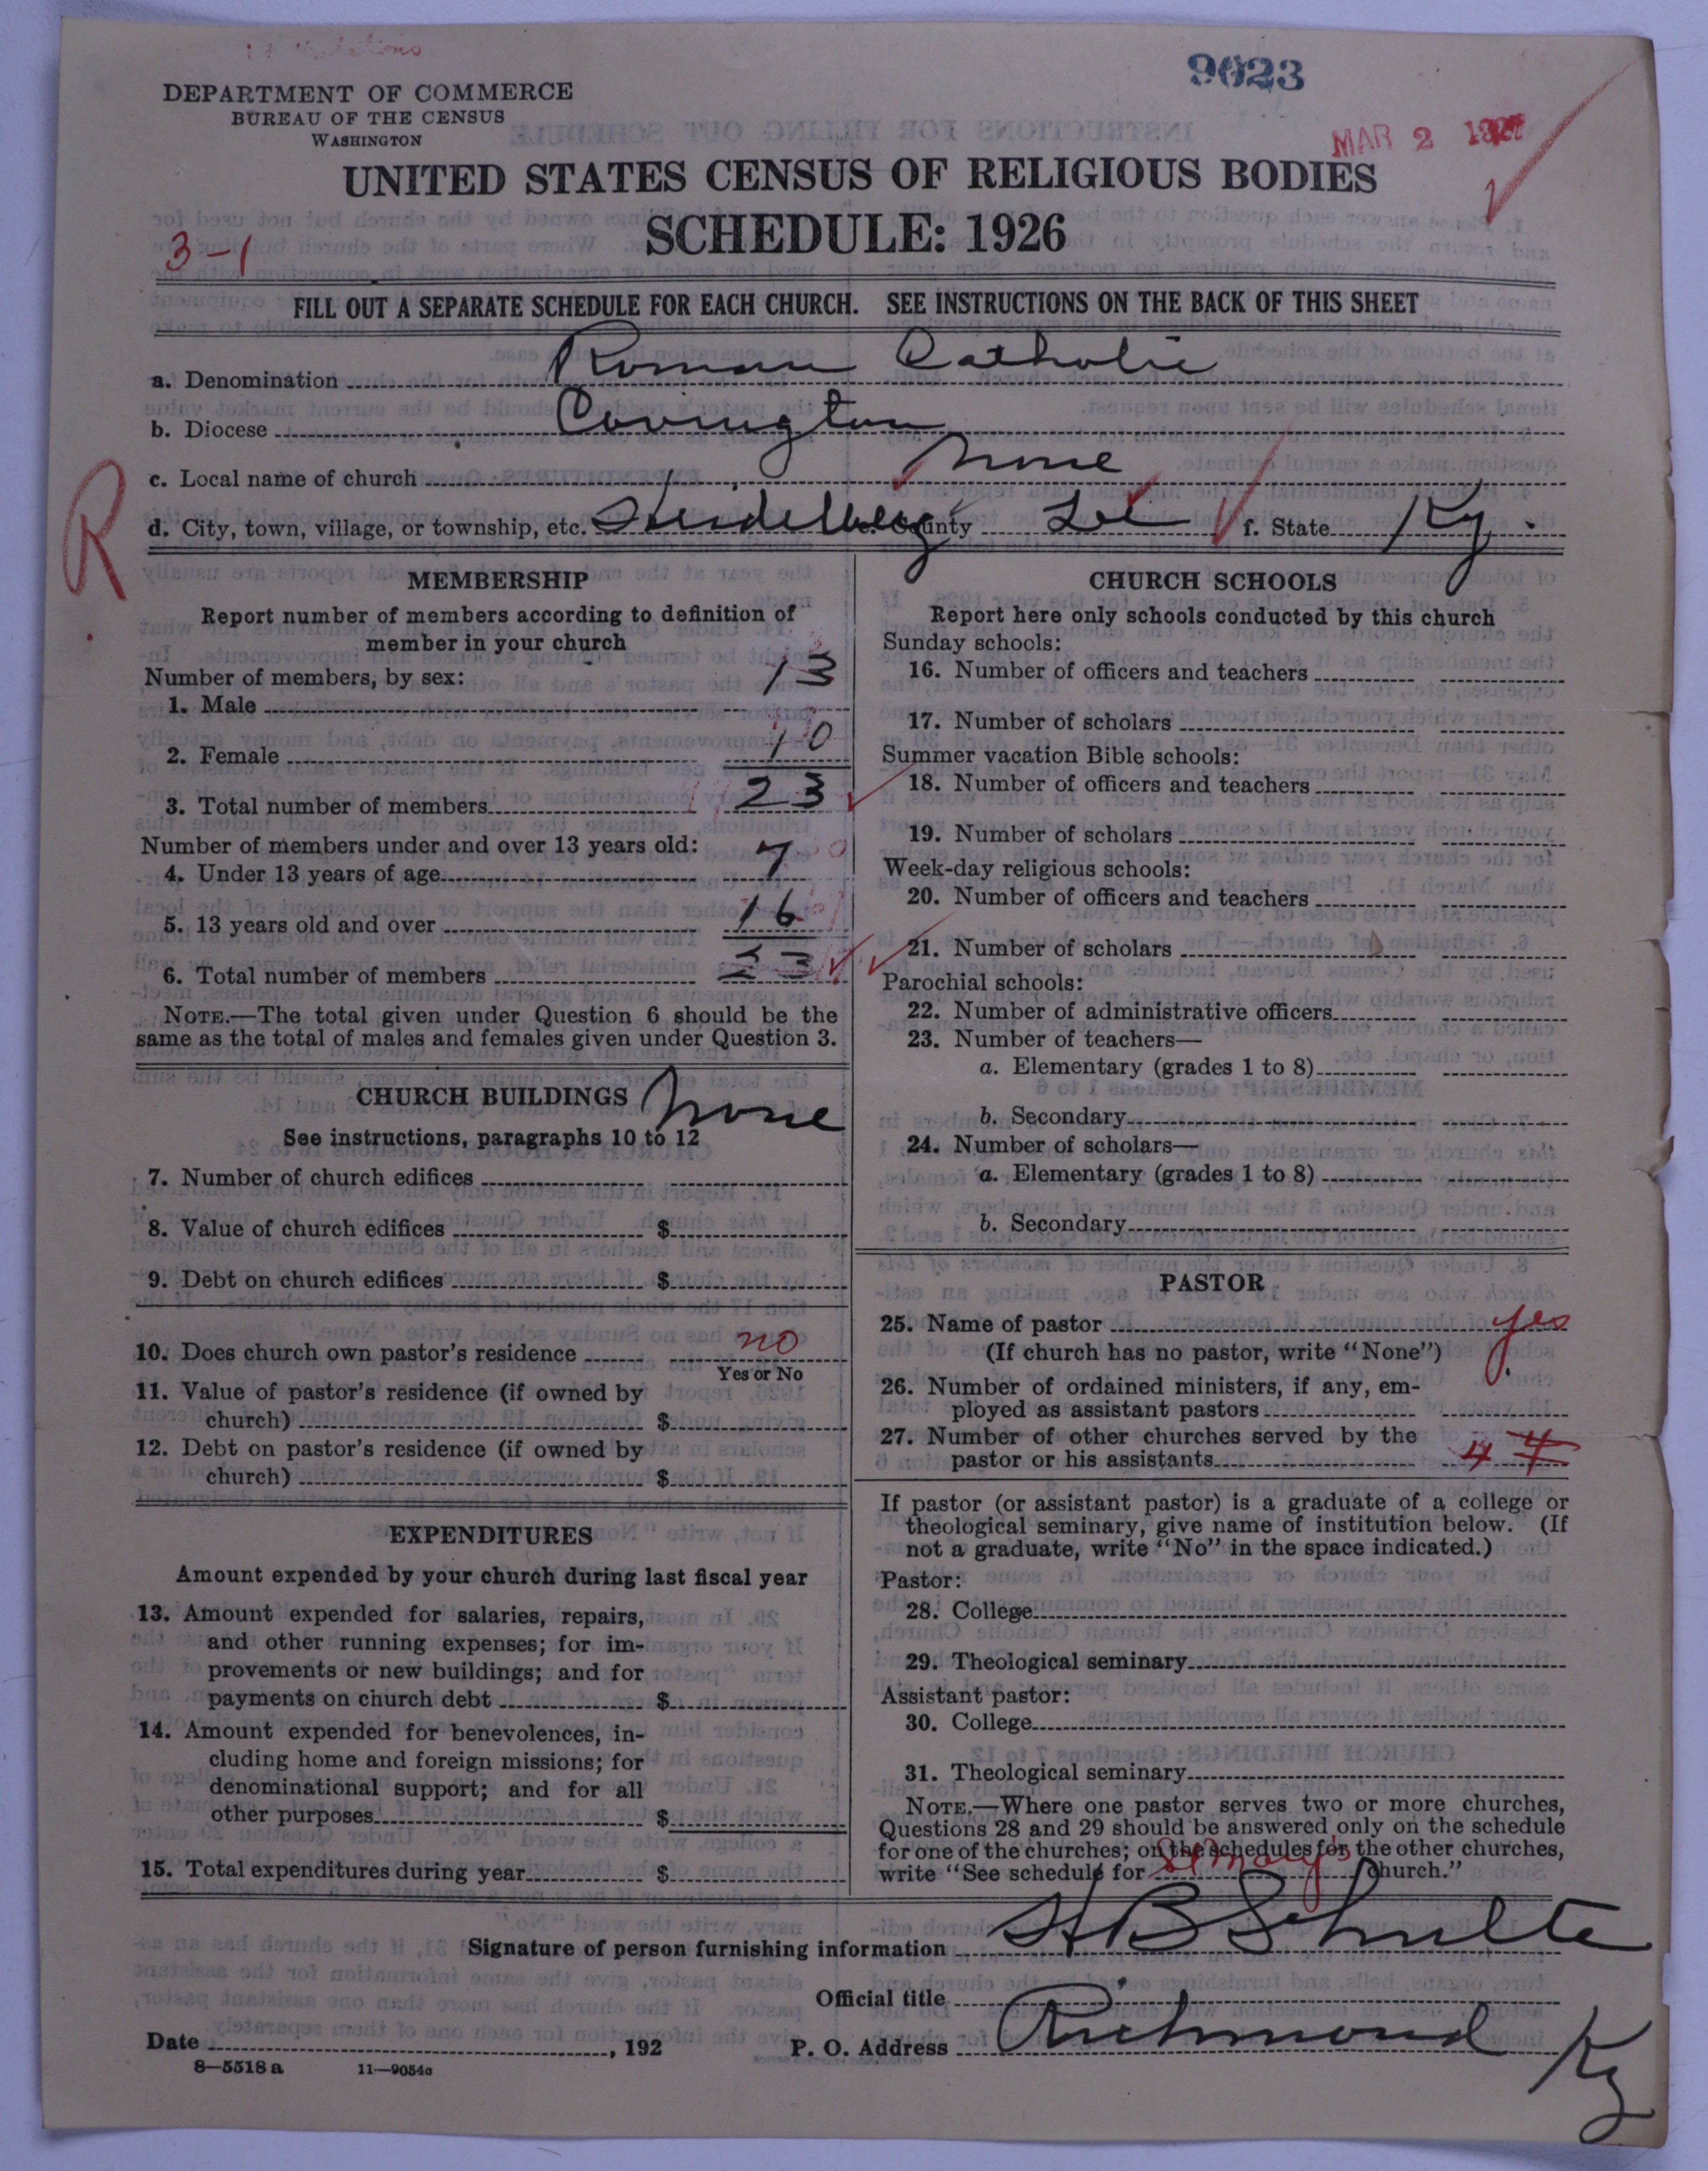 9023
DEPARTMENT OF COMMERCE
BUREAU OF THE CENSUS
WASHINGTON
MAR 2 1927
UNITED STATES CENSUS OF RELIGIOUS BODIES
SCHEDULE: 1926
3-1
FILL OUT A SEPARATE SCHEDULE FOR EACH CHURCH. SEE INSTRUCTIONS ON THE BACK OF THIS SHEET
a. Denomination Roman Catholic
b. Diocese Covington
c. Local name of church None
R
d. City, town, village, or township, etc. Heidelberg e. County Lee f. State Ky.
MEMBERSHIP
Report number of members according to definition of
member in your church
Number of members, by sex:
1. Male 13
2. Female 10
3. Total number of members 23
Number of members under and over 13 years old:
4. Under 13 years of age 7
5. 13 years old and over 16
6. Total number of members 23
NOTE.—The total given under Question 6 should be the
same as the total of males and females given under Question 3.
CHURCH BUILDINGS None
See instructions, paragraphs 10 to 12
7. Number of church edifices
8. Value of church edifices $
9. Debt on church edifices $
10. Does church own pastor's residence no
Yes or No
11. Value of pastor's residence (if owned by
church) $
12. Debt on pastor's residence (if owned by
church) $
EXPENDITURES
Amount expended by your church during last fiscal year
13. Amount expended for salaries, repairs,
and other running expenses; for im-
provements or new buildings; and for
payments on church debt $
14. Amount expended for benevolences, in-
cluding home and foreign missions; for
denominational support; and for all
other purposes $
15. Total expenditures during year $
CHURCH SCHOOLS
Report here only schools conducted by this church
Sunday schools:
16. Number of officers and teachers
17. Number of scholars
Summer vacation Bible schools:
18. Number of officers and teachers
19. Number of scholars
Week-day religious schools:
20. Number of officers and teachers
21. Number of scholars
Parochial schools:
22. Number of administrative officers
23. Number of teachers—
a. Elementary (grades 1 to 8)
b. Secondary
24. Number of scholars—
a. Elementary (grades 1 to 8)
b. Secondary
PASTOR
25. Name of pastor yes
(If church has no pastor, write "None")
26. Number of ordained ministers, if any, em-
ployed as assistant pastors
27. Number of other churches served by the
pastor or his assistants 4 4
If pastor (or assistant pastor) is a graduate of a college or
theological seminary, give name of institution below. (If
not a graduate, write "No" in the space indicated.)
Pastor:
28. College
29. Theological seminary
Assistant pastor:
30. College
31. Theological seminary
NOTE.—Where one pastor serves two or more churches,
Questions 28 and 29 should be answered only on the schedule
for one of the churches; on the schedules for the other churches,
write "See schedule for St Mary's Church."
Signature of person furnishing information H B Schulte
Official title
Date , 192 P. O. Address Richmond Ky
8—5518 a 11—9054a